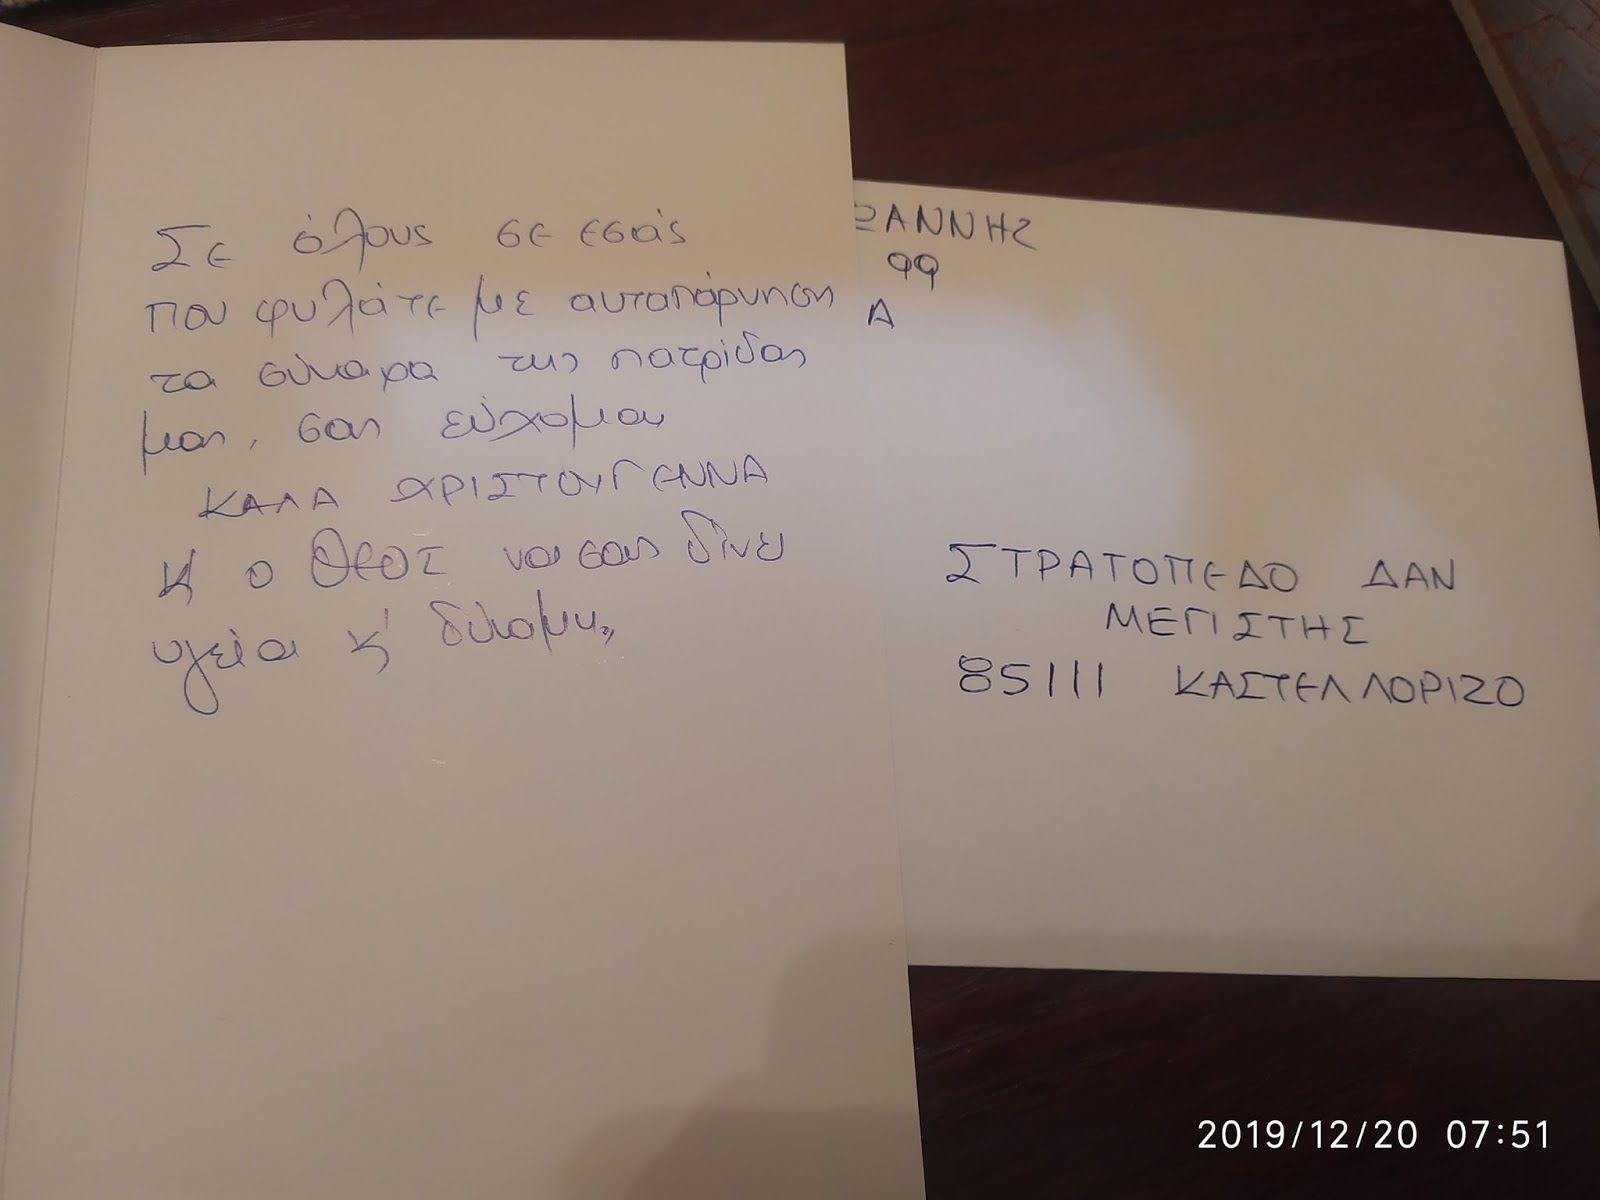 Σε όλους σε εσάς
που φυλάτε με αυταπάρνηση
τα σύνορα της πατρίδας
μας, σας εύχομαι
ΚΑΛΑ ΧΡΙΣΤΟΥΓΕΝΝΑ
κ' ο Θεος να σας δίνει
υγεία κ' δύναμη,,
ΩΑΝΝΗΣ
99
Α
ΣΤΡΑΤΟΠΕΔΟ ΔΑΝ
ΜΕΓΙΣΤΗΣ
85111 ΚΑΣΤΕΛΛΟΡΙΖΟ
2019/12/20 07:51